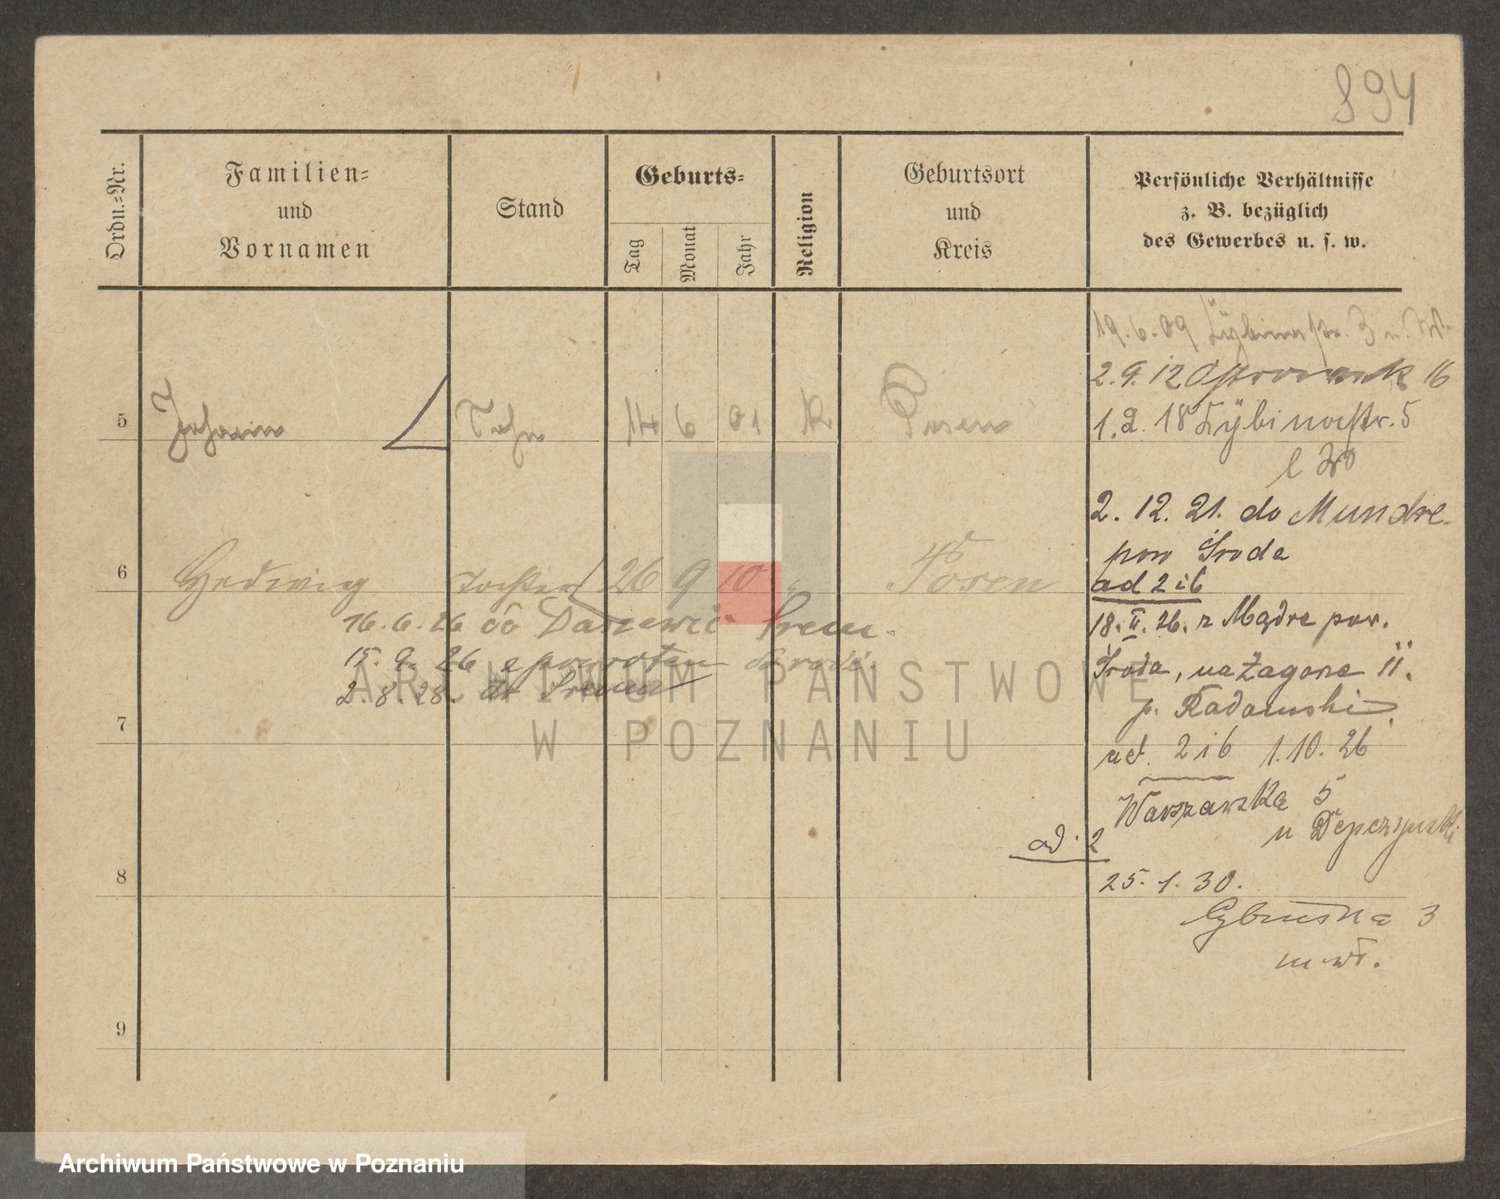 894
Ordn.-Nr.
Familien-
und
Vornamen
Stand
Geburts-
Tag
Monat
Jahr
Religion
Geburtsort
und
Kreis
Persönliche Verhältnisse
z. B. bezüglich
des Gewerbes u. s. w.
19.6.09 Zybinastr. 3
2.9.12 Ostrowek 16
5 Johann Sohn 14 6 01 K Posen
1.2.18 Zybinastr. 5
2. 12. 21. do Mundre
pow Środa
6 Hedwig Tochter 26 9 10 " Posen
ad 2 i 6
16.6.26 do Daszewic Śrem.
18.II.26. z Mądre pow.
15.9.26 z powrotem
Środa, na Zagórze 11.
2.8.28. do Śremu
p. Radomski
7
ad. 2 i 6 1.10.26
Warszawska 5
u Depczyński
ad. 2
8
25.1.30.
Cybińska 3
9
ARCHIWUM PAŃSTWOWE
W POZNANIU
Archiwum Państwowe w Poznaniu